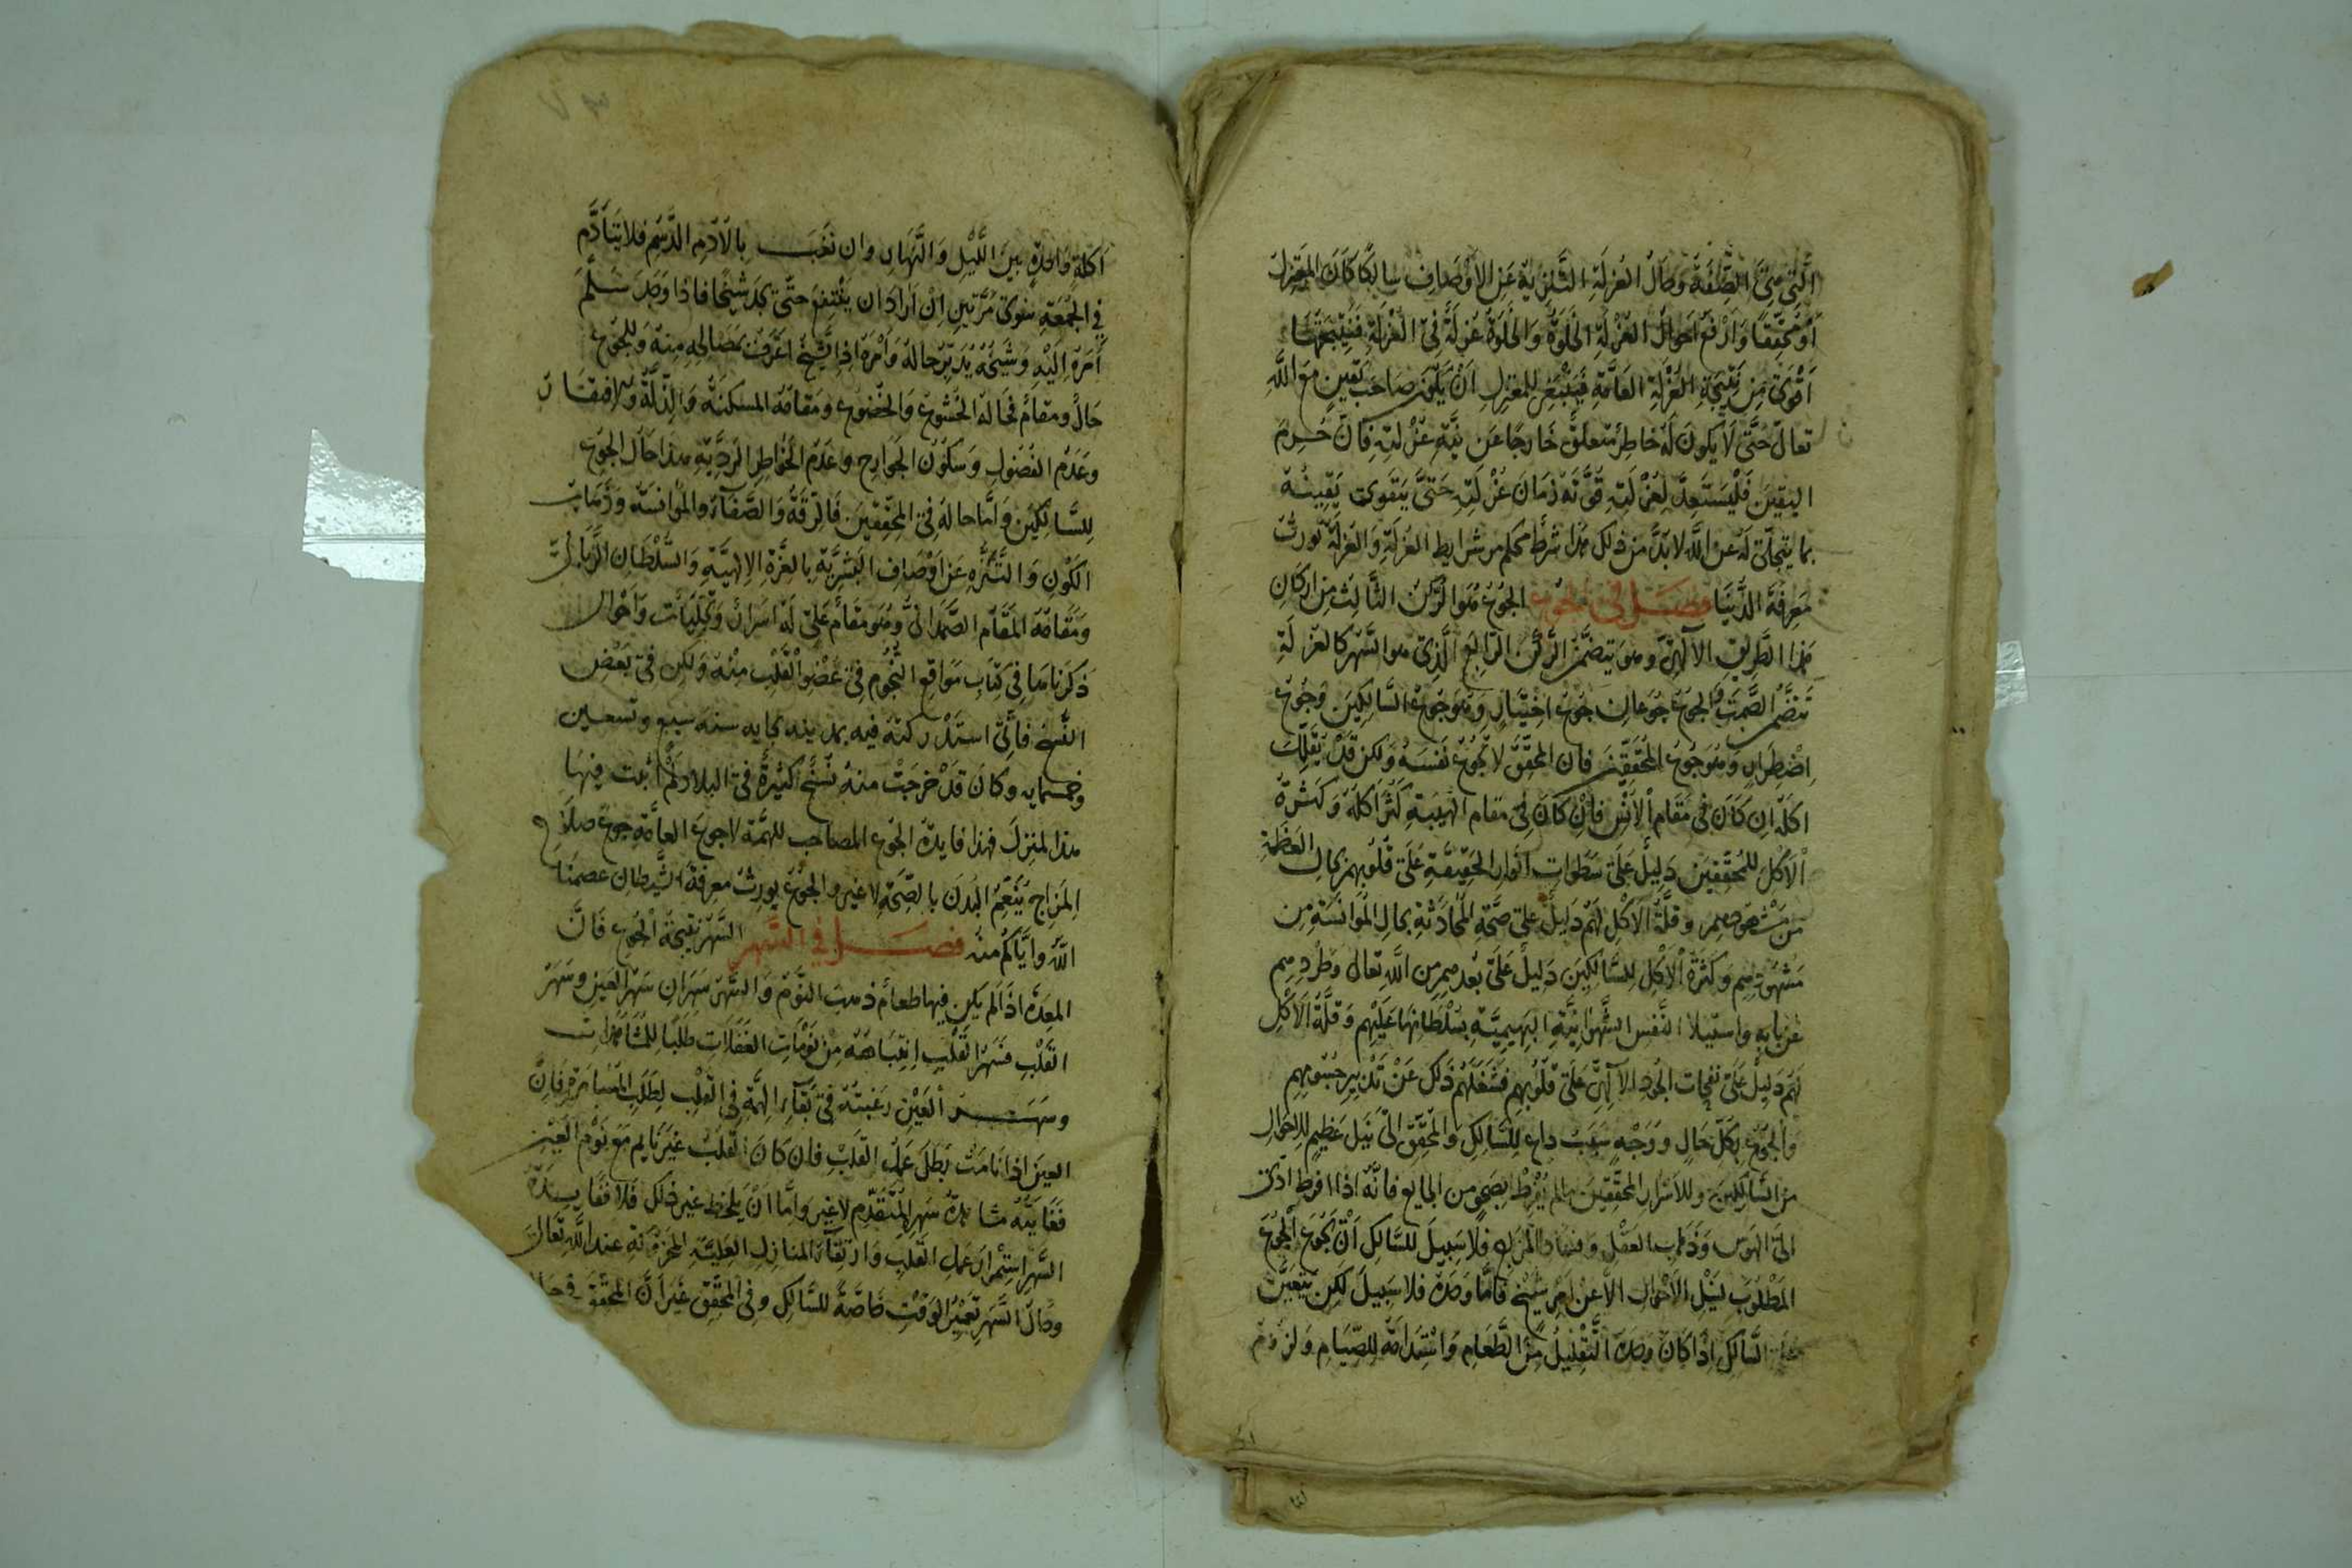 الَّتِي هِيَ الصِّفَةُ وَحَالُ العُزْلَةِ التَّنْزِيهُ عَنِ الأَوْصَافِ سَالِكًا كَانَ المُعْتَزِلُ
أَوْ مُحَقِّقًا وَأَرْفَعُ أَحْوَالِ العُزْلَةِ الخَلْوَةُ وَالخَلْوَةُ عُزْلَةٌ فِي العُزْلَةِ فَنَتِيجَتُهَا
أَقْوَى مِنْ نَتِيجَةِ العُزْلَةِ العَامَّةِ فَيَنْبَغِي لِلمُعْتَزِلِ أَنْ يَكُونَ صَاحِبَ يَقِينٍ مَعَ اللَّهِ
تعالى حَتَّى لَا يَكُونَ لَهُ خَاطِرٌ مُتَعَلِّقٌ خَارِجًا عَن بَيْتِ عُزْلَتِهِ فَإِنْ حُرِمَ
اليقِينَ فَلْيَسْتَعِدَّ لِعُزْلَتِهِ قُوَّتَهُ زَمَانَ عُزْلَتِهِ حَتَّى يَتَقَوَّى يَقِينُهُ
بما يتجلّى لَهُ عَن اللَّهِ لابدّ من ذلك هذا شرطٌ محكم من شرايط العُزْلَةِ وَالعُزْلَةُ تُورِثُ
مَعْرِفَةَ الدُّنْيَا فصل في الجوع الجُوْعُ هُوَ الرُّكْنُ الثَّالِثُ مِنْ أَرْكَانِ
هَذَا الطَّرِيقِ الإِلَهِيِّ وهو يتضمّن الرُّكْنَ الرَّابِعَ الَّذِي هو السَّهَرُ كالعُزْلَةِ
تَتَضَمَّنُ الصَّمْتَ وَالجُوعُ جُوعَانِ جُوعُ اخْتِيَارٍ وَهُوَ جُوعُ السَّالِكِينَ وَجُوعُ
اضْطِرَارٍ وَهُوَ جُوعُ المُحَقِّقِينَ فإن المحقّق لا يُجَوِّعُ نَفْسَهُ وَلكن قَدْ يُقَلِّلُ
أَكْلَهُ إِن كَانَ فِي مَقَامِ الأُنْسِ فَإِنْ كَانَ فِي مَقَامِ الهَيْبَةِ كَثُرَ أَكْلُهُ وَكَثْرَةُ
الأَكْلِ لِلْمُحَقِّقِينَ دَلِيلٌ عَلَى سَطَوَاتِ أَنْوَارِ الحَقِيقَةِ عَلَى قُلُوبِهِمْ بِحَالِ العَظَمَةِ
مِنْ مَشْهُودِهِمْ وَقِلَّةُ الأَكْلِ لَهُمْ دَلِيلٌ عَلَى صِحَّةِ المُحَادَثَةِ بِحَالِ المُؤَانَسَةِ مِن
مَشْهُودِهِم وَكَثْرَةُ الأَكْلِ لِلسَّالِكِينَ دَلِيلٌ عَلَى بُعْدِهِم مِن اللَّهِ تَعَالَى وَطَرْدِهِم
عَنْ بَابِهِ وَاستِيلَاءِ النَّفْسِ الشَّهْوَانِيَّةِ البَهِيمِيَّةِ بِسُلْطَانِهَا عَلَيْهِم وَقِلَّةُ الأَكْلِ
لَهُم دَلِيلٌ عَلَى نَفَحَاتِ الجُودِ الإلَهِيِّ عَلَى قُلُوبِهِم فَشَغَلَهُم ذَلِكَ عَنْ تَدْبِيرِ جُسُومِهِم
وَالجُوعُ بِكُلِّ حَالٍ وَوَجْهٍ سَبَبٌ دَاعٍ لِلسَّالِكِ وَالمُحَقِّقِ إِلَى نَيْلٍ عَظِيمٍ لِلأَحْوَالِ
مِنَ السَّالِكِينَ وللأَسْرَارِ المُحَقِّقِينَ مَا لَم يُفْرِطْ بِصَحْوٍ من الجايع فَإِنَّهُ إِذَا أَفْرَطَ أَدَّى
إِلَى الهَوَسِ وَذَهَابِ العَقْلِ وَفَسَادِ المِزَاجِ فَلَا سَبِيلَ لِلسَّالِكِ أَنْ يَجُوعَ الجُوعَ
المَطْلُوبَ لِنَيْلِ الأَحْوَالِ إِلَّا عَنْ أَمْرِ شَيْخٍ فَأَمَّا وَحْدَهُ فَلَا سَبِيلَ لَكِن يَتَعَيَّنُ
عَلَى السَّالِكِ إِذَا كَانَ وَحْدَهُ التَّقْلِيلُ مِنَ الطَّعَامِ وَاسْتِدَامَةُ الصِّيَامِ وَلُزُومُ
أَكْلَةٍ وَاحِدَةٍ بَيْنَ اللَّيْلِ وَالنَّهَارِ وَإِن نَغَبَ بِالأَدَمِ الدَّسِمِ فَلَا يَتَأَدَّمُ
فِي الجُمُعَةِ سِوَى مَرَّتَيْنِ إِنْ أَرَادَ أَن يَنْتَفِعَ حَتَّى يَجِدَ شَيْخًا فَإِذَا وَجَدَ سَلَّمَ
أَمْرَهُ إِلَيْهِ وَشَيْخُهُ يُدَبِّرُ حَالَهُ وَأَمْرَهُ إِذِ الشَّيْخُ أَعْرَفُ بِمَصَالِحِهِ مِنْهُ وَلِلجُوعِ
حَالٌ وَمَقَامٌ فَحَالُهُ الخُشُوعُ وَالخُضُوعُ وَمَقَامُهُ المَسْكَنَةُ وَالذِّلَّةُ وَالافْتِقَارُ
وَعَدَمُ الفُضُولِ وَسُكُونُ الجَوَارِحِ وَعَدَمُ الخَوَاطِرِ الرَّدِيَّةِ هَذَا حَالُ الجُوعِ
لِلسَّالِكِينَ وَأَمَّا حَالُهُ فِي المُحَقِّقِينَ فَالرِّقَّةُ وَالصَّفَاءُ وَالمُؤَانَسَةُ وَذَهَابُ
الكَوْنِ وَالتَّنَزُّهُ عَنْ أَوْصَافِ البَشَرِيَّةِ بِالعِزَّةِ الإِلَهِيَّةِ وَالسُّلْطَانِ الرَّبَّانِيِّ
وَمَقَامُهُ المَقَامُ الصَّمَدَانِيُّ وَهُوَ مَقَامٌ عَلِيٌّ لَهُ أَسْرَارٌ وَتَجَلِّيَاتٌ وَأَحْوَالٌ
ذَكَرْنَاهَا فِي كِتَابِ مَوَاقِعِ النُّجُومِ فِي عُضْوِ القَلْبِ مِنْهُ وَلَكِن فِي بَعْضِ
النُّسَخِ فَإِنِّي اسْتَدْرَكْتُهُ فِيهِ بِمَدِينَةِ بجايه سنة سبع وتسعين
وخمسمايه وَكَانَ قَدْ خَرَجَتْ مِنْهُ نُسَخٌ كَثِيرَةٌ فِي البِلَادِ لَمْ أُثْبِتْ فِيهَا
هذا المنزل فَهَذَا فَايِدَةُ الجُوعِ المُصَاحِبِ لِلْهِمَّةِ لا جُوعِ العَامَّةِ جُوعُ صَلَاحِ
المِزَاجِ يُنَعِّمُ البَدَنَ بِالصِّحَّةِ لا غَيْرُ وَالجُوعُ يُورِثُ مَعْرِفَةَ الشَّيْطَانِ عَصَمَنَا
اللَّهُ وَإِيَّاكُمْ مِنْهُ فصل في السهر السَّهَرُ نَتِيجَةُ الجُوعِ فَإِنَّ
المَعِدَةَ إِذَا لَم يَكُن فِيهَا طَعَامٌ ذَهَبَ النَّوْمُ وَالسَّهَرُ سَهَرَانِ سَهَرُ العَيْنِ وَسَهَرُ
القَلْبِ فَسَهَرُ القَلْبِ انْتِبَاهُهُ مِنْ نَوْمَاتِ الغَفَلَاتِ طَلَبًا لِلْمُشَاهَدَاتِ
وَسَهَرُ العَيْنِ رَغْبَتُهُ فِي بَقَاءِ الهِمَّةِ فِي القَلْبِ لِطَلَبِ المُسَامَرَةِ فَإِنَّ
العَيْنَ إِذَا نَامَتْ بَطَلَ عَمَلُ القَلْبِ فَإِن كَانَ القَلْبُ غَيْرَ نَايِمٍ مَعَ نَوْمِ العَيْنِ
فَغَايَتُهُ مُشَاهَدَةُ سَهَرِ المُتَقَدِّمِ لا غَيْرُ وَأَمَّا أَنْ يَلْحَظَ غَيْرَ ذَلِكَ فَلَا فَفَايِدَةُ
السَّهَرِ اسْتِمْرَارُ عَمَلِ القَلْبِ وَارْتِقَاءُ المَنَازِلِ العَلِيَّةِ المَخْزُونَةِ عِنْدَ اللَّهِ تَعَالَى
وَحَالُ السَّهَرِ تَعْمِيرُ الوَقْتِ خَاصَّةً لِلسَّالِكِ وَفِي المُحَقِّقِ غَيْرَ أَنَّ المُحَقِّقَ فِي